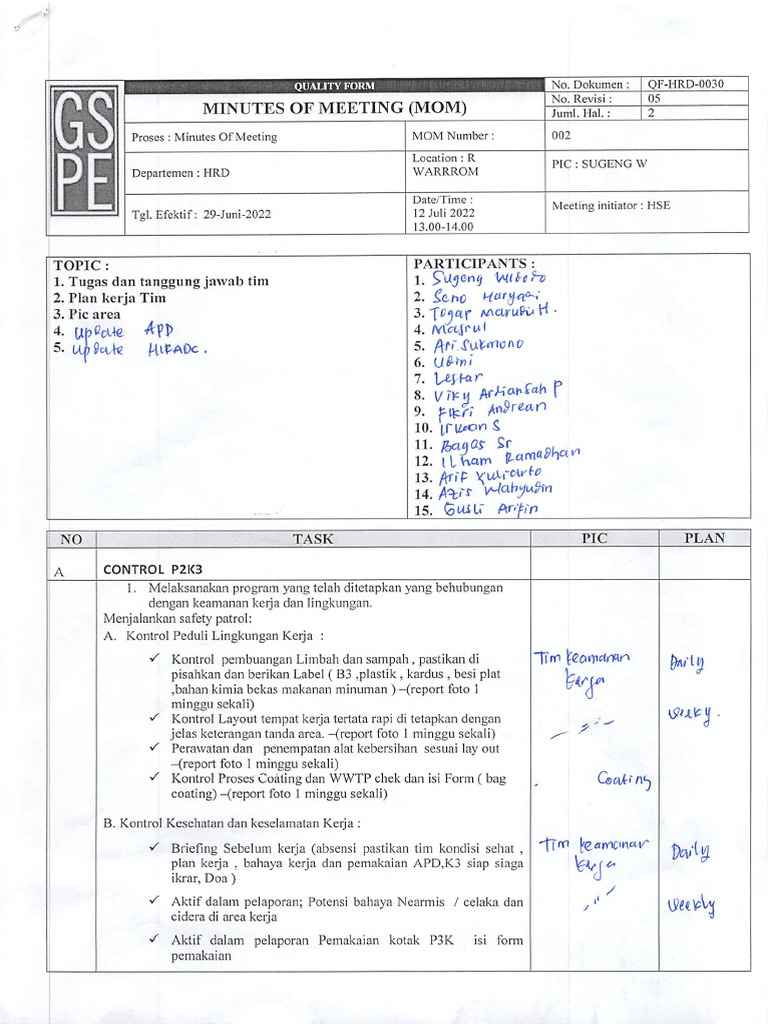 GS
PE
QUALITY FORM
MINUTES OF MEETING (MOM)
No. Dokumen : QF-HRD-0030
No. Revisi : 05
Juml. Hal. : 2
Proses : Minutes Of Meeting
MOM Number : 002
Departemen : HRD
Location : R
WARRROM
PIC : SUGENG W
Tgl. Efektif : 29-Juni-2022
Date/Time :
12 Juli 2022
13.00-14.00
Meeting initiator : HSE
TOPIC :
1. Tugas dan tanggung jawab tim
2. Plan kerja Tim
3. Pic area
4. Update APD
5. Update HIRADC.
PARTICIPANTS :
1. Sugeng Widodo
2. Seno Haryadi
3. Togap Marudu H.
4. Masrul
5. Ari Sukmono
6. Udmi
7. Lestar
8. Viky Ardiansah P
9. Fikri Andrean
10. S
11. Bagas Sr
12. Ilham Ramadhan
13. Arif Yuliarto
14. Azis Wahyudin
15. Gusli Arifin
NO TASK PIC PLAN
A CONTROL P2K3
1. Melaksanakan program yang telah ditetapkan yang behubungan
dengan keamanan kerja dan lingkungan.
Menjalankan safety patrol:
A. Kontrol Peduli Lingkungan Kerja :
✓ Kontrol pembuangan Limbah dan sampah , pastikan di Tim keamanan Daily
pisahkan dan berikan Label ( B3 ,plastik , kardus , besi plat kerja
,bahan kimia bekas makanan minuman ) –(report foto 1
minggu sekali)
✓ Kontrol Layout tempat kerja tertata rapi di tetapkan dengan weeky.
jelas keterangan tanda area. –(report foto 1 minggu sekali) — " —
✓ Perawatan dan penempatan alat kebersihan sesuai lay out
–(report foto 1 minggu sekali)
✓ Kontrol Proses Coating dan WWTP chek dan isi Form ( bag Coating
coating) –(report foto 1 minggu sekali)
B. Kontrol Kesehatan dan keselamatan Kerja :
✓ Briefing Sebelum kerja (absensi pastikan tim kondisi sehat , Tim keamanan Daily
plan kerja , bahaya kerja dan pemakaian APD,K3 siap siaga kerja
ikrar, Doa )
✓ Aktif dalam pelaporan; Potensi bahaya Nearmis / celaka dan — " — weekly
cidera di area kerja
✓ Aktif dalam pelaporan Pemakaian kotak P3K isi form
pemakaian